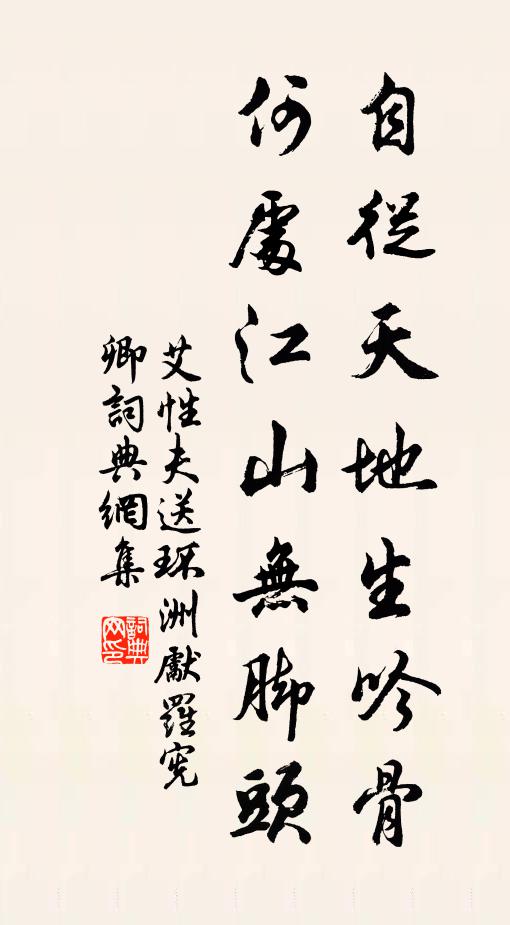 自從天地生吟骨
何處江山無脚頭
艾性夫送環洲獻羅寃
卿詞典網集
詞典
网印